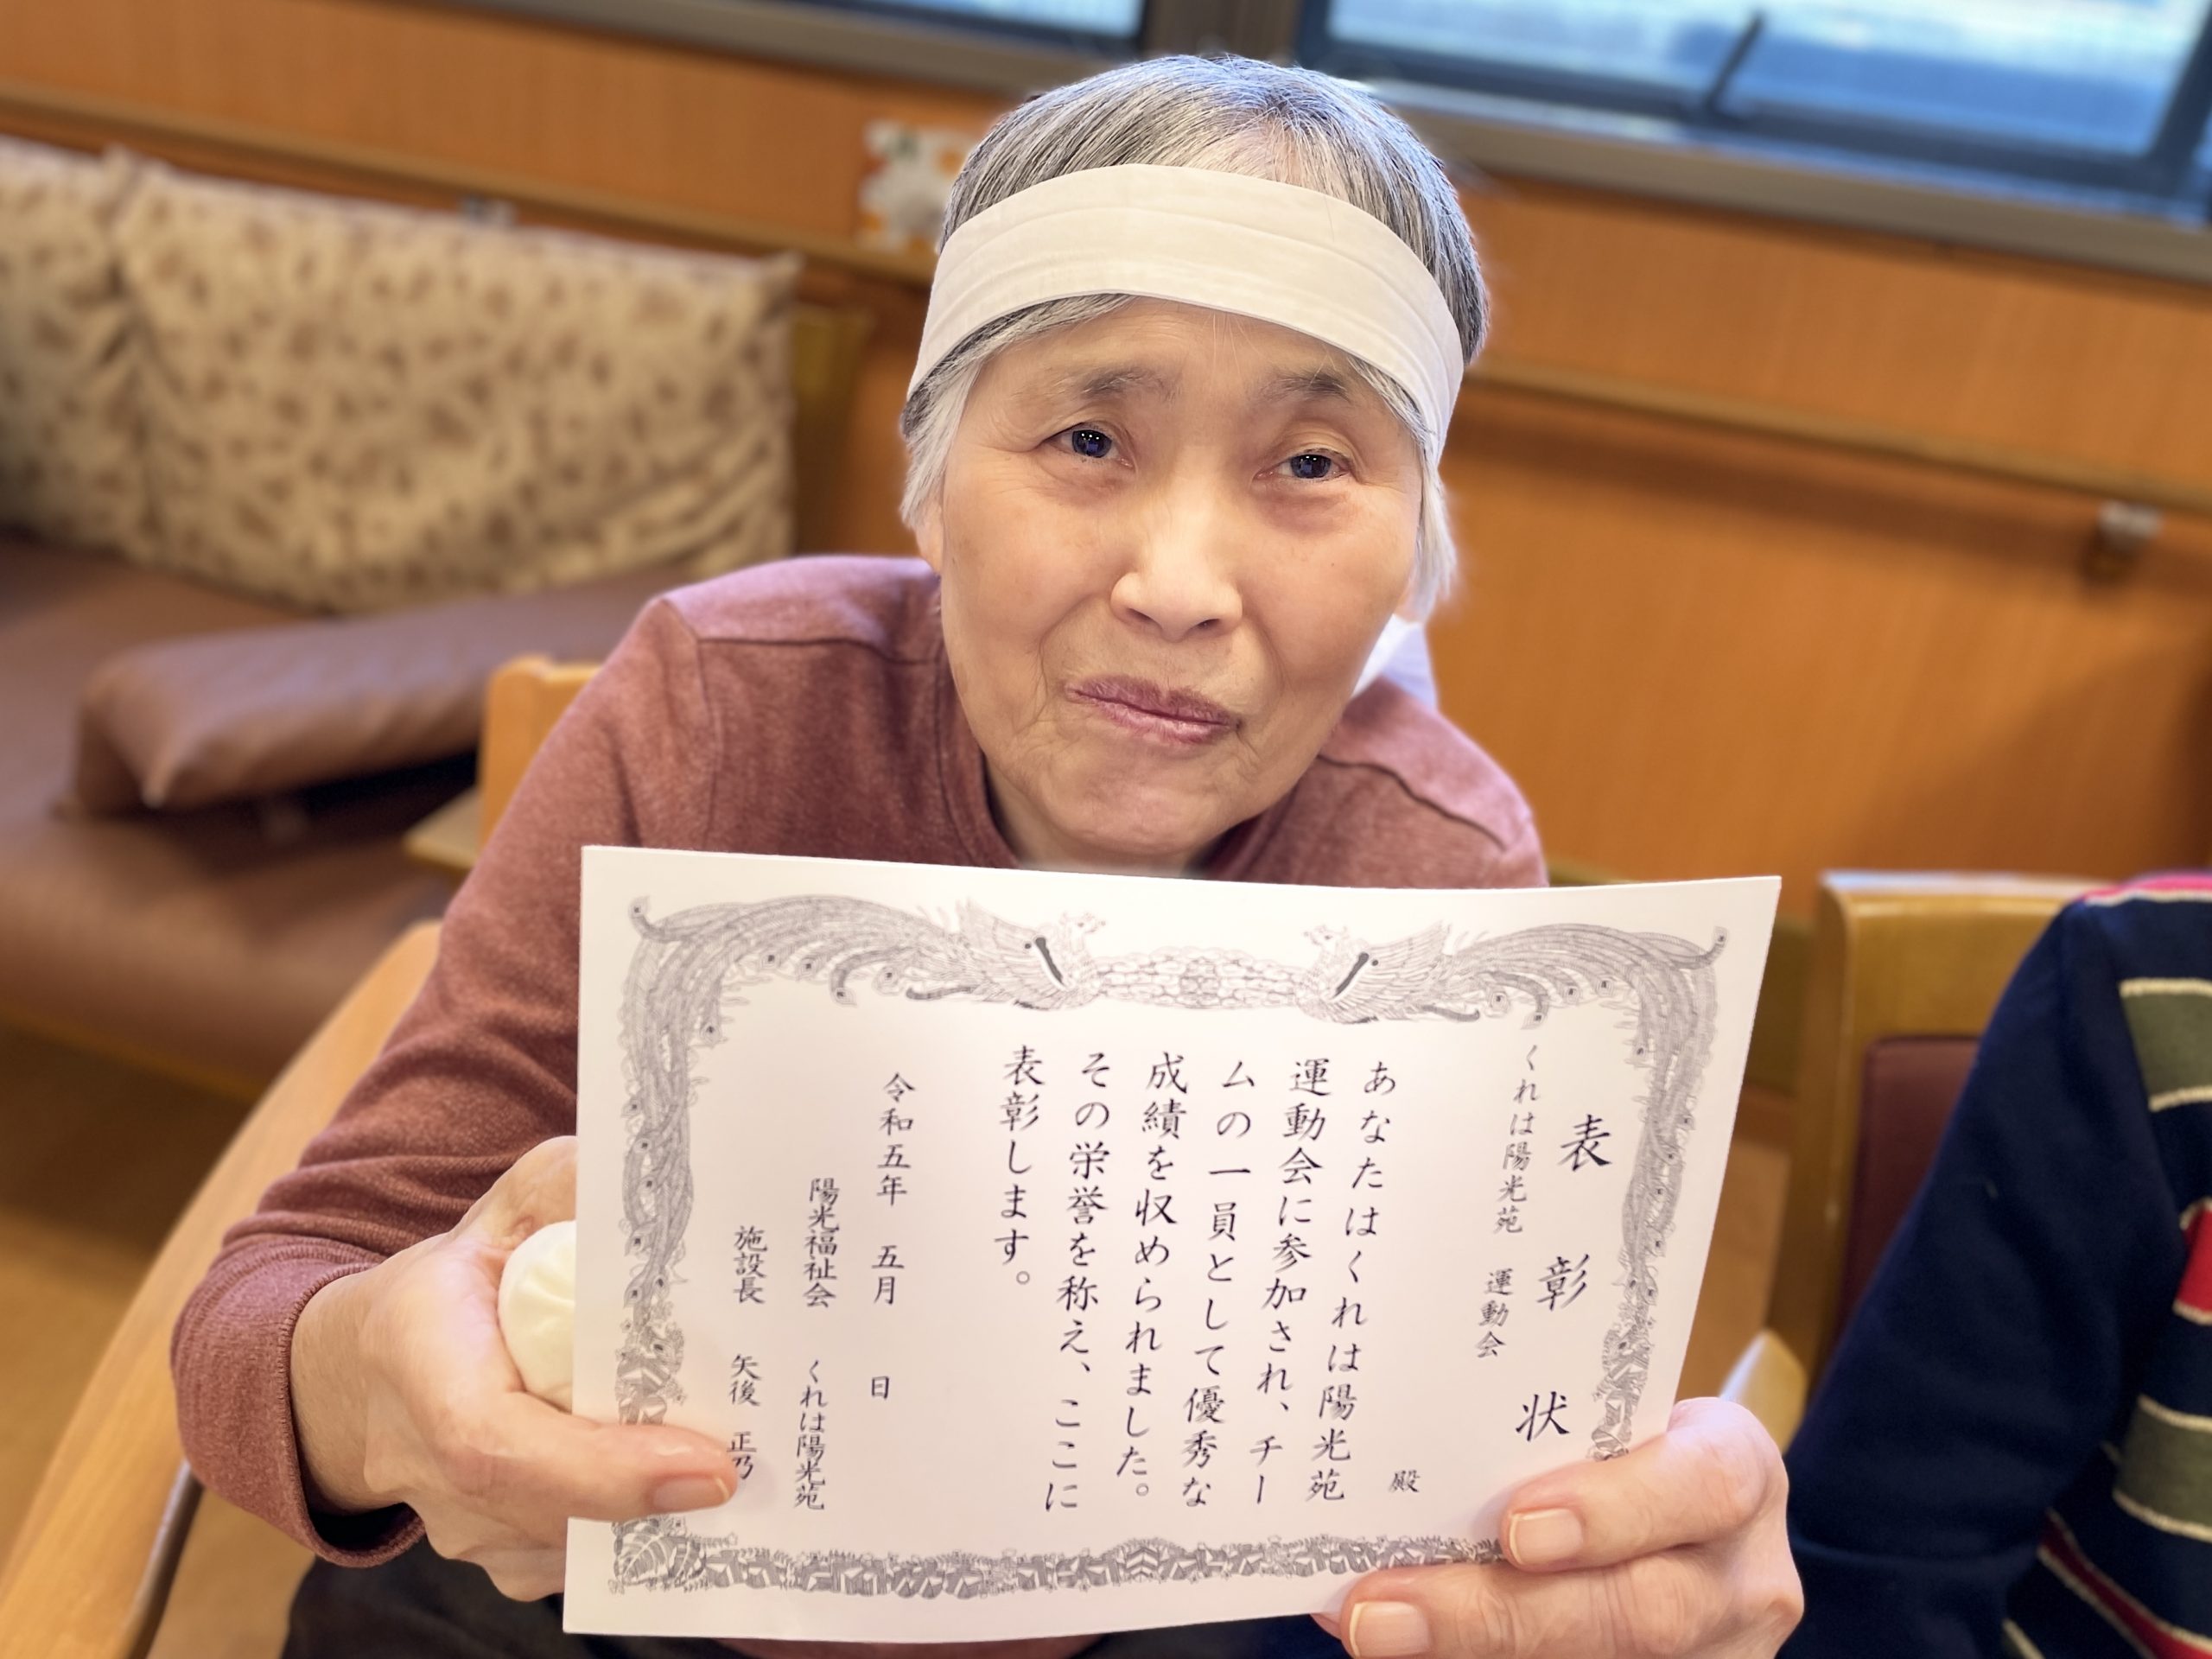 表彰状
くれは陽光苑 運動会
殿
あなたはくれは陽光苑
運動会に参加され、チー
ムの一員として優秀な
成績を収められました。
その栄誉を称え、ここに
表彰します。
令和五年 五月 日
陽光福祉会 くれは陽光苑
施設長 矢後 正乃